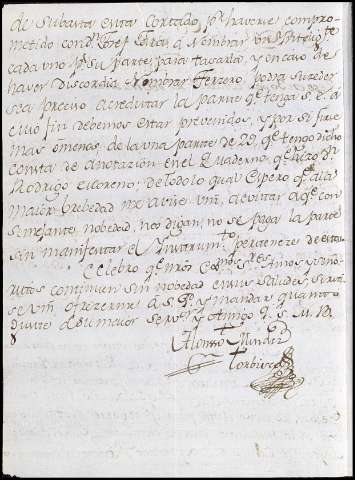 de Subasta estar Cortado, pr haverse compro-
metido con Dn Josep a Nombrar un Perito
cada uno pr su parte, para tasarla, y en caso de
haver Discordia Nombrar Terzero, podra suceder
sea preciso acreditar la parte qe tenga S. E. a
cuio fin debemos estar prevenidos, y por si fuese
mas o menos, de la una parte de 29, qe tengo dicho
consta de anotazion en el Quaderno qe hizo Dn
Rodrigo de todo lo qual Espero qe a la
maior brebedad me avise Vm, a evitar a qe con
semejante nobedad, nos digan, no se paga la parte
sin manifestar el Ynstrumto pertenezte
Celebro qe nros Exmos Sres Amos y
continuen sin nobedad en sus saludes, sirva
se Vm ofrezerme a S. Ps y mandar quanto
guste a su maior Servr y Amigo Q. S. M. B.
Alonso